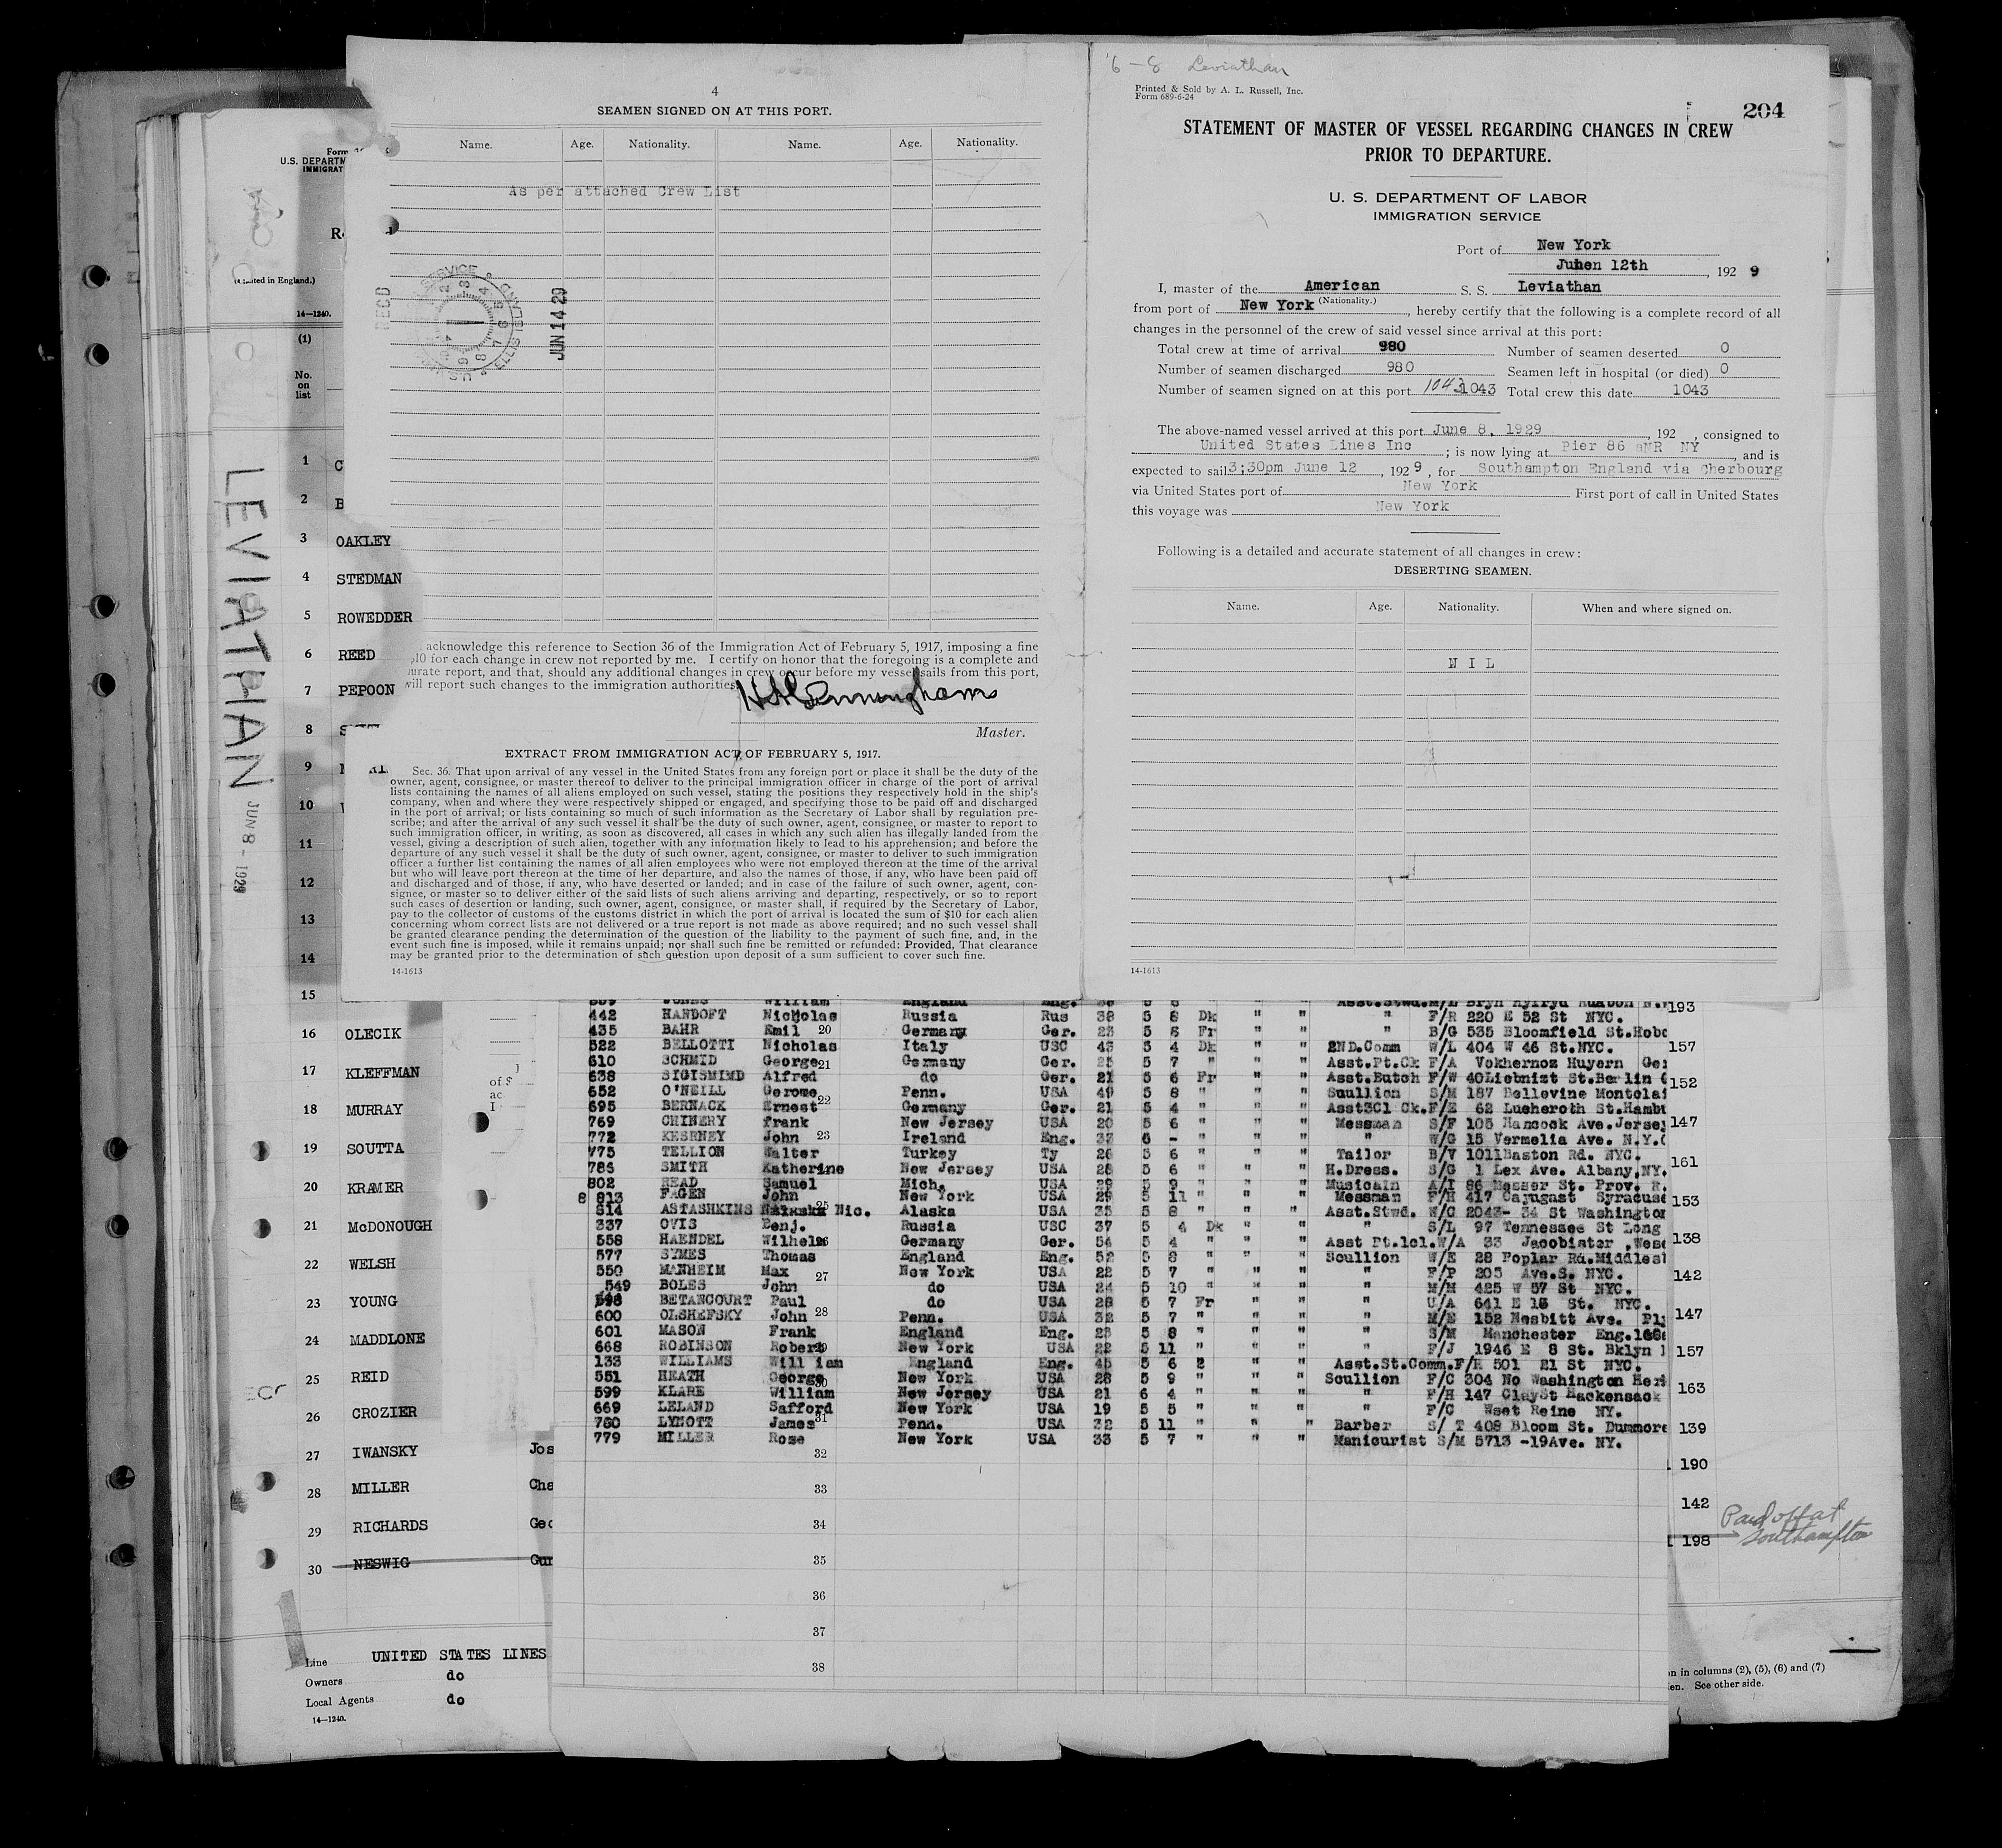 4
SEAMEN SIGNED ON AT THIS PORT.
Name. Age. Nationality. Name. Age. Nationality.
As per attached Crew List
RECD
JUN 14 29
acknowledge this reference to Section 36 of the Immigration Act of February 5, 1917, imposing a fine
10 for each change in crew not reported by me. I certify on honor that the foregoing is a complete and
urate report, and that, should any additional changes in crew occur before my vessel sails from this port,
will report such changes to the immigration authorities
Master.
EXTRACT FROM IMMIGRATION ACT OF FEBRUARY 5, 1917.
Sec. 36. That upon arrival of any vessel in the United States from any foreign port or place it shall be the duty of the
owner, agent, consignee, or master thereof to deliver to the principal immigration officer in charge of the port of arrival
lists containing the names of all aliens employed on such vessel, stating the positions they respectively hold in the ship's
company, when and where they were respectively shipped or engaged, and specifying those to be paid off and discharged
in the port of arrival; or lists containing so much of such information as the Secretary of Labor shall by regulation pre-
scribe; and after the arrival of any such vessel it shall be the duty of such owner, agent, consignee, or master to report to
such immigration officer, in writing, as soon as discovered, all cases in which any such alien has illegally landed from the
vessel, giving a description of such alien, together with any information likely to lead to his apprehension; and before the
departure of any such vessel it shall be the duty of such owner, agent, consignee, or master to deliver to such immigration
officer a further list containing the names of all alien employees who were not employed thereon at the time of the arrival
but who will leave port thereon at the time of her departure, and also the names of those, if any, who have been paid off
and discharged and of those, if any, who have deserted or landed; and in case of the failure of such owner, agent, con-
signee, or master so to deliver either of the said lists of such aliens arriving and departing, respectively, or so to report
such cases of desertion or landing, such owner, agent, consignee, or master shall, if required by the Secretary of Labor,
pay to the collector of customs of the customs district in which the port of arrival is located the sum of $10 for each alien
concerning whom correct lists are not delivered or a true report is not made as above required; and no such vessel shall
be granted clearance pending the determination of the question of the liability to the payment of such fine, and, in the
event such fine is imposed, while it remains unpaid; nor shall such fine be remitted or refunded: Provided, That clearance
may be granted prior to the determination of such question upon deposit of a sum sufficient to cover such fine.
14-1613
6-8 Leviathan
Printed & Sold by A. L. Russell, Inc.
Form 689-6-24
204
STATEMENT OF MASTER OF VESSEL REGARDING CHANGES IN CREW
PRIOR TO DEPARTURE.
U. S. DEPARTMENT OF LABOR
IMMIGRATION SERVICE
Port of New York
12th, 192 9
I, master of the American S. S. Leviathan
(Nationality.)
from port of New York, hereby certify that the following is a complete record of all
changes in the personnel of the crew of said vessel since arrival at this port:
Total crew at time of arrival 980 Number of seamen deserted 0
Number of seamen discharged 980 Seamen left in hospital (or died) 0
Number of seamen signed on at this port 1043 1043 Total crew this date 1043
The above-named vessel arrived at this port June 8, 1929, 192 , consigned to
United States Lines Inc; is now lying at Pier 86 NR NY, and is
expected to sail 3:30pm June 12, 192 9, for Southampton England via Cherbourg
via United States port of New York First port of call in United States
this voyage was New York
Following is a detailed and accurate statement of all changes in crew:
DESERTING SEAMEN.
Name. Age. Nationality. When and where signed on.
N I L
14-1613
Form
U.S. DEPARTM
IMMIGRAT
14-1240.
(1)
No.
on
list
LEVIATHAN
JUN 8 - 1929
1
2
3 OAKLEY
4 STEDMAN
5 ROWEDDER
6 REED
7 PEPOON
8
9
10
11
12
13
14
15
16 OLECIK
17 KLEFFMAN
18 MURRAY
19 SOUTTA
20 KRAMER
21 McDONOUGH
22 WELSH
23 YOUNG
24 MADDLONE
25 REID
26 CROZIER
27 IWANSKY Jos
28 MILLER Cha
29 RICHARDS Geo
30 NESWIG Gun
442 HANDOFT Nicholas Russia Rus 38 5 8 Dk " " " F/R 220 E 52 St NYC.
435 BAHR Emil Germany Ger. 23 5 8 Fr " " " B/G 535 Bloomfield St.Hobo
522 BELLOTTI Nicholas Italy USC 43 5 4 Dk " " 2ND.Comm W/L 404 W 46 St.NYC.
610 SCHMID George Germany Ger. 25 5 7 " " " Asst.Pt.Ck F/A Vokhernoz Huyern Ger
638 SIGISMIMD Alfred do Ger. 21 5 6 Fr " " Asst.Butch F/W 40Liebnizt St.Berlin
652 O'NEILL Gerome Penn. USA 49 5 8 " " " Suullion S/M 187 Bellevine Montclai
695 BERNACK Ernest Germany Ger. 21 5 4 " " " Asst3Cl Ck.F/E 62 Lueheroth St.Hambu
769 CHINERY frank New Jersey USA 20 5 6 " " " Messman S/F 105 Hancock Ave.Jersey
772 John Ireland Eng. 37 6 - " " " " W/G 15 Vermelia Ave. N.Y.C
775 TELLION Walter Turkey Ty 26 5 6 " " " Tailor B/V 1011Easton Rd. NYC.
786 SMITH Katherine New Jersey USA 28 5 6 " " " H.Dress. S/G 1 Lex Ave. Albany,NY.
802 READ Samuel Mich. USA 29 5 9 " " " Musicain A/I 86 Messer St. Prov. R.
8 813 FAGEN John New York USA 29 5 11 " " " Messman F/H 417 Cayugast Syracuse
814 ASTASHKINS Nic. Alaska USA 35 5 8 " " " Asst.Stwd. W/C 2043- 34 St Washington
337 OVIS Benj. Russia USC 37 5 4 Dk " " " S/L 97 Tennessee St Long
558 HAENDEL Wilhelm Germany Ger. 54 5 4 " " " Asst Pt.lcl.W/A 33 Jacobister ,Wese
577 SYMES Thomas England Eng. 52 5 8 " " " Scullion W/E 28 Poplar Rd.Middlesl
550 MANHEIM Max New York USA 22 5 7 " " " " F/P 203 Ave.S. NYC.
549 BOLES John do USA 24 5 10 " " " " M/M 425 W 57 St NYC.
598 BETANCOURT Paul do USA 28 5 7 Fr " " " U/A 641 E 15 St. NYC.
600 OLSHEFSKY John Penn. USA 32 5 7 " " " " M/E 152 Nesbitt Ave. Ply
601 MASON Frank England Eng. 23 5 8 " " " " S/M Manchester Eng.
668 ROBINSON Robert New York USA 22 5 11 " " " " F/J 1946 E 8 St. Bklyn
133 WILLIAMS Will iam England Eng. 45 5 6 2 " " Asst.St.Comm.F/H 501 21 St NYC.
551 HEATH George New York USA 28 5 9 " " " Scullion F/C 304 No Washington Her
599 KLARE William New Jersey USA 21 6 4 " " " " F/H 147 ClaySt Hackensack
669 LELAND Safford New York USA 19 5 5 " " " " F/C Wset Reine NY.
760 LYNOTT James Penn. USA 32 5 11 " " " Barber S/ T 408 Bloom St. Dunmore
779 MILLER Rose New York USA 33 5 7 " " " Manicurist S/M 5713 -19Ave. NY.
32
33
34
35
36
37
38
193
157
152
147
161
153
138
142
147
157
163
139
190
142
198
Paid off at
Southampton
Line UNITED STATES LINES
Owners do
Local Agents do
14-1240.
on in columns (2), (5), (6) and (7)
en. See other side.